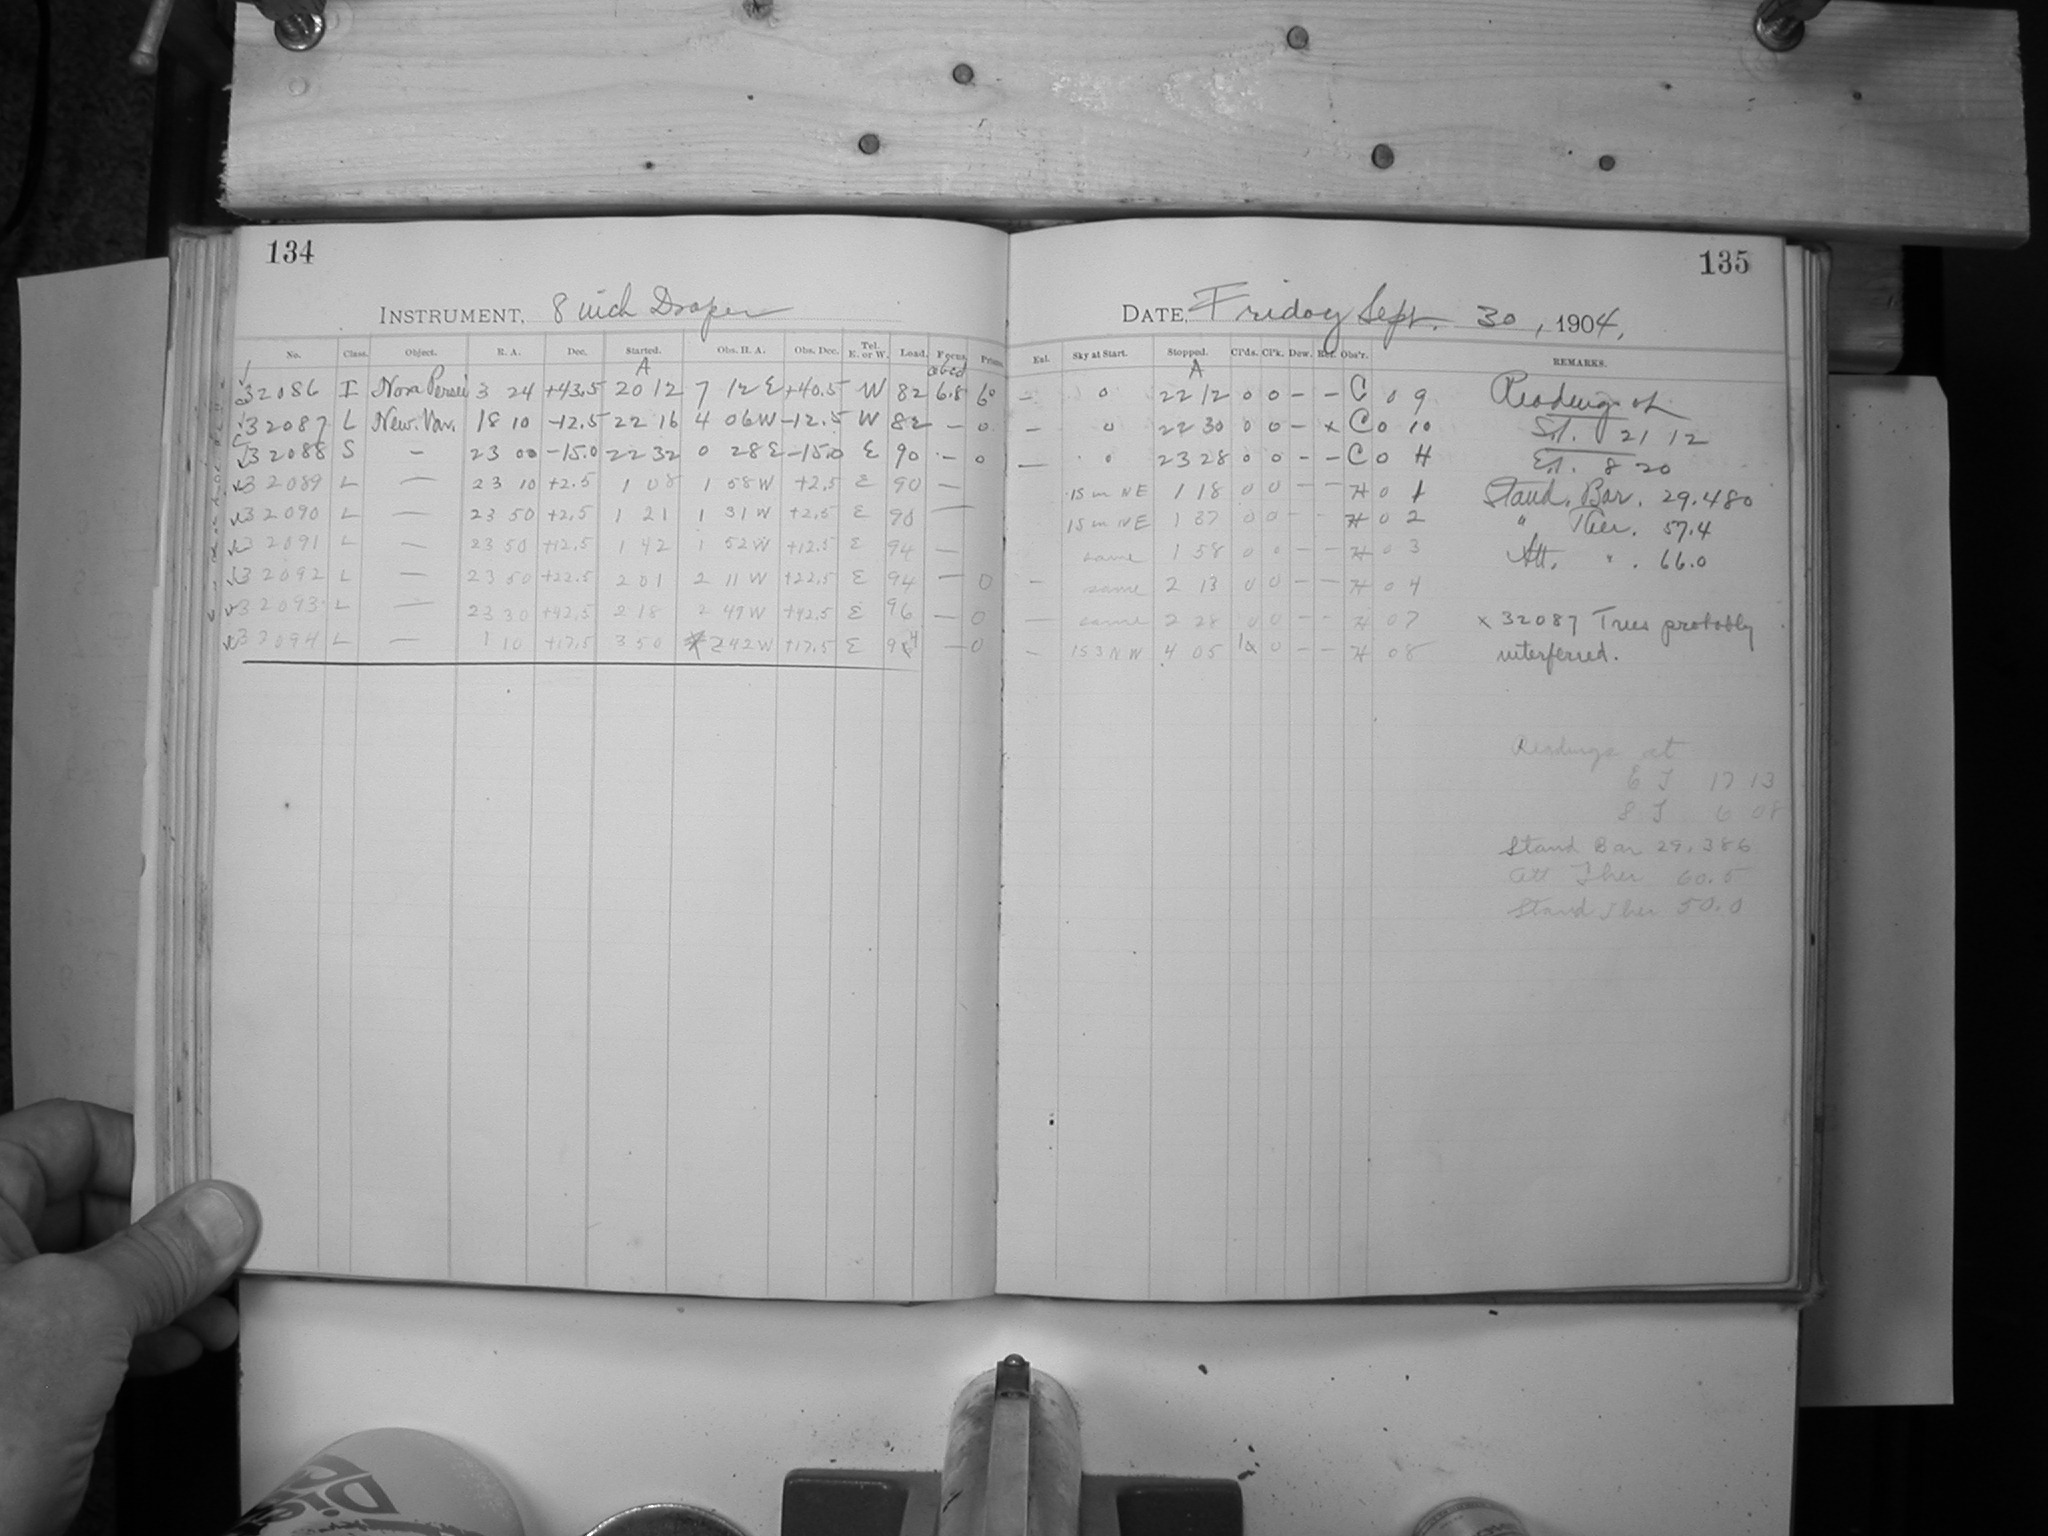 134
INSTRUMENT. 8 inch Draper
No. Class. Object. R. A. Dec. Started. Obs. H. A. Obs. Dec. Tel. E. or W. Load. Focus.
A
32086 I Nova Persei 3 24 +43.5 20 12 7 12 E +40.5 W 82 6.8 60
32087 L New. Var. 18 10 -12.5 22 16 4 06 W -12.5 W 82 - 0
32088 S - 23 00 -15.0 22 32 0 28 E -15.0 E 90 - 0
32089 L - 23 10 +2.5 1 08 1 58 W +2.5 E 90 -
32090 L - 23 50 +2.5 1 21 1 31 W +2.5 E 90 -
32091 L - 23 50 +12.5 1 42 1 52 W +12.5 E 94 -
32092 L - 23 50 +22.5 2 01 2 11 W +22.5 E 94 - 0
32093 L - 23 30 +42.5 2 18 2 49 W +42.5 E 96 - 0
32094 L - 1 10 +17.5 3 50 2 42 W +17.5 E - 0
135
DATE, Friday Sept. 30, 1904,
Exl. Sky at Start. Stopped. Cl'ds. Cl'k. Dew. Obs'r. REMARKS.
A
- 0 22 12 0 0 - - C 0 9
- 0 22 30 0 0 - x C 0 10
- 0 23 28 0 0 - - C 0 H
15 m NE 1 18 0 0 - - H 0 1
15 m NE 1 37 0 0 - - H 0 2
same 1 58 0 0 - - H 0 3
- same 2 13 0 0 - - H 0 4
- same 2 28 0 0 - - H 0 7
- 15 3 NW 4 05 0 - - H 0 8
Readings at
S.T. 21 12
E.T. 8 20
Stand. Bar. 29.480
" Ther. 57.4
Att. " . 66.0
x 32087 Trees probably
interferred.
Readings at
E T 17 13
S T 6 08
Stand Bar 29.386
Att Ther 60.5
Stand Ther 50.0